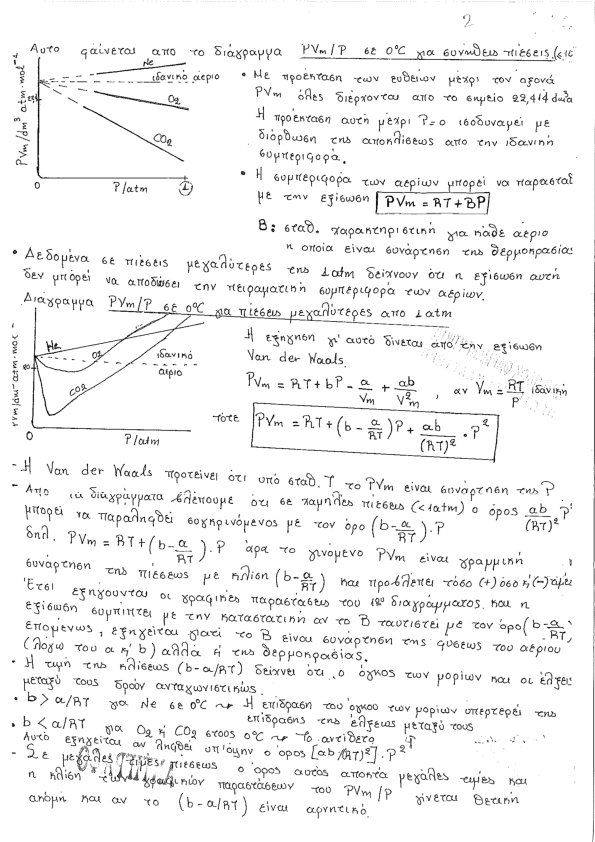 2
Αυτο φαίνεται απο το διάγραμμα PVm/P σε 0°C για συνήθεις πιέσεις
PVm/dm³ atm·mol⁻¹
Ne
ιδανικό αέριο
O₂
CO₂
0
P/atm
1
• Με προέκταση των ευθείων μέχρι τον αξονά
PVm όλες διέρχονται απο το σημείο 22,414 dm³a
Η προέκταση αυτή μέχρι P=0 ισοδυναμεί με
διόρθωση της αποκλίσεως απο την ιδανική
συμπεριφορά.
• Η συμπεριφορά των αερίων μπορεί να παρασταθ
με την εξίσωση PVm = RT + BP
B: σταθ. χαρακτηριστική για κάθε αέριο
η οποία είναι συνάρτηση της θερμοκρασίας
• Δεδομένα σε πιέσεις μεγαλύτερες της 1atm δείχνουν ότι η εξίσωση αυτή
δεν μπορεί να αποδώσει την πειραματική συμπεριφορά των αερίων.
Διάγραμμα PVm/P σε 0°C για πιέσεις μεγαλύτερες απο 1atm
Ne
O₂
ιδανικό
αέριο
CO₂
0
P/atm
Η εξήγηση γι' αυτό δίνεται από την εξίσωση
Van der Waals.
PVm = RT + bP - a/Vm + ab/V²m , αν Vm = RT/P ιδανική
τότε PVm = RT + (b - a/RT)P + ab/(RT)² · P²
- Η Van der Waals προτείνει ότι υπό σταθ. T το PVm είναι συνάρτηση της P
- Απο τα διαγράμματα βλέπουμε ότι σε χαμηλές πιέσεις (<1atm) ο όρος ab/(RT)² P²
μπορεί να παραληφθεί συγκρινόμενος με τον όρο (b - a/RT).P
δηλ. PVm = RT + (b - a/RT).P άρα το γινόμενο PVm είναι γραμμική
συνάρτηση της πιέσεως με κλίση (b - a/RT) και προβλέπει τόσο (+) όσο κ' (-) τιμές
Έτσι εξηγούνται οι γραφικές παραστάσεις του 1ου διαγράμματος και η
εξίσωση συμπίπτει με την καταστατική αν το B ταυτιστεί με τον όρο (b - a/RT)
επομένως, εξηγείται γιατί το B είναι συνάρτηση της φύσεως του αερίου
(λόγω του a κ' b) αλλά κ' της θερμοκρασίας.
• Η τιμή της κλίσεως (b - a/RT) δείχνει ότι ο όγκος των μορίων και οι έλξει
μεταξύ τους δρούν ανταγωνιστικώς.
• b > a/RT για Ne σε 0°C ⇝ Η επίδραση του όγκου των μορίων υπερτερεί της
επίδρασης της έλξεως μεταξύ τους
• b < a/RT για O₂ κ' CO₂ στους 0°C ⇝ Το αντίθετο
Αυτό εξηγείται αν ληφθεί υπ' όψην ο όρος [ab/(RT)²].P²
- Σε μεγάλες τιμές πιέσεως ο όρος αυτός αποκτά μεγάλες τιμές και
η κλίση των γραφικών παραστάσεων του PVm/P γίνεται θετική
ακόμη και αν το (b - a/RT) είναι αρνητικό.